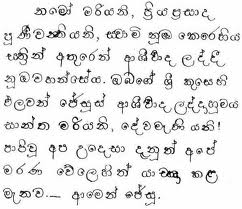 නමෝ මරියනි, ප්‍රියප්‍රසාද
පූර්ණවර්ණියනි, ස්වාමි නුඹ කෙරෙහිය
ස්ත්‍රීන් අතුරෙන් ආශීර්වාද ලද්දී
නුඹවහන්සේය. ඔබගේ ශ්‍රී කුසෙහි
ඵලවන් ජේසුස් ආශීර්වාද ලද්දාහුමය
සාන්ත මරියනි, දේවමෑණියනි!
පාපිවූ අප උදෙසා දැනුත් අපේ
මරණ වේලෙහිත් යාච්ඤා කළ
මැනව. – ආමෙන් ජේසු.